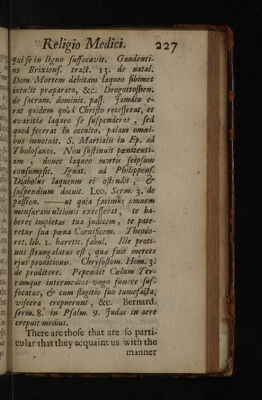 Religio Medici. 227
qui se in ligno suffocavit. Gaudenti-
us Brixiens. tract. 13. de natal.
Dom. Mortem debitam laqueo sibimet
intulit præparato, &c. Drogottoshen.
de sacram. dominic. pass. Jamdiu e-
rat quidem quòd Christo recesserat, et
avaritiæ laqueo se suspenderat, sed
quod fecerat in occulto, palam omni-
bus innotuit. S. Martialis in Ep. ad
Tholosanos. Non sustinuit pænitenti-
am, donec laqueo mortis seipsum
consumpsit. Ignat. ad Philippens.
Diabolus laqueum ei ostendit, &
suspendium docuit. Leo. Serm. 3. de
passion. —— ut quia facinus omnem
mensuram ultionis excesserat, te ha-
beret impietas tua judicem, te pate-
retur sua pæna Carnificem. Theodo-
ret. lib. 1. hæretic. fabul. Ille proti-
nus strangulatus est, quæ fuit merces
ejus proditionis. Chrysostom. Hom. 3.
de proditore. Pependit Cælum Ter-
ramque intermedius vago funere suf-
focatus, & cum flagitio suo tumefacta,
viscera crepuerunt, &c. Bernard.
serm. 8. in Psalm. 9. Judas in aere
crepuit medius.
There are those that are so parti-
cular that they acquaint us with the
manner